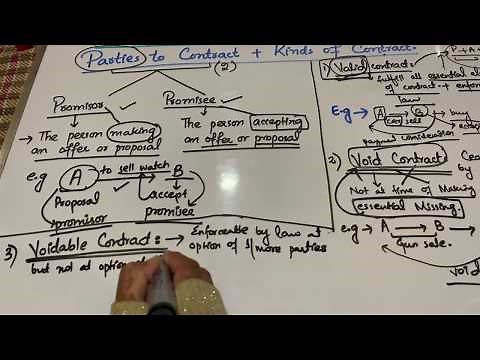 Parties to Contract + Kinds of Contract.
(2)
Promisor
→ The person making
an offer or proposal
Promisee
The person accepting
an offer or proposal
e.g A to sell watch B
Proposal
promisor
accept
promisee
3) Voidable Contract: → Enforceable by law at
option of 1/more parties
but not at option
1) Valid contract:
P + A
fulfill all essential
of contract + enfor
law
E.g → A B buy
car sell
payment consideration
2) Void Contract
by
Not at time of Making
essential Missing.
e.g → A → B →
Gun sale.
void